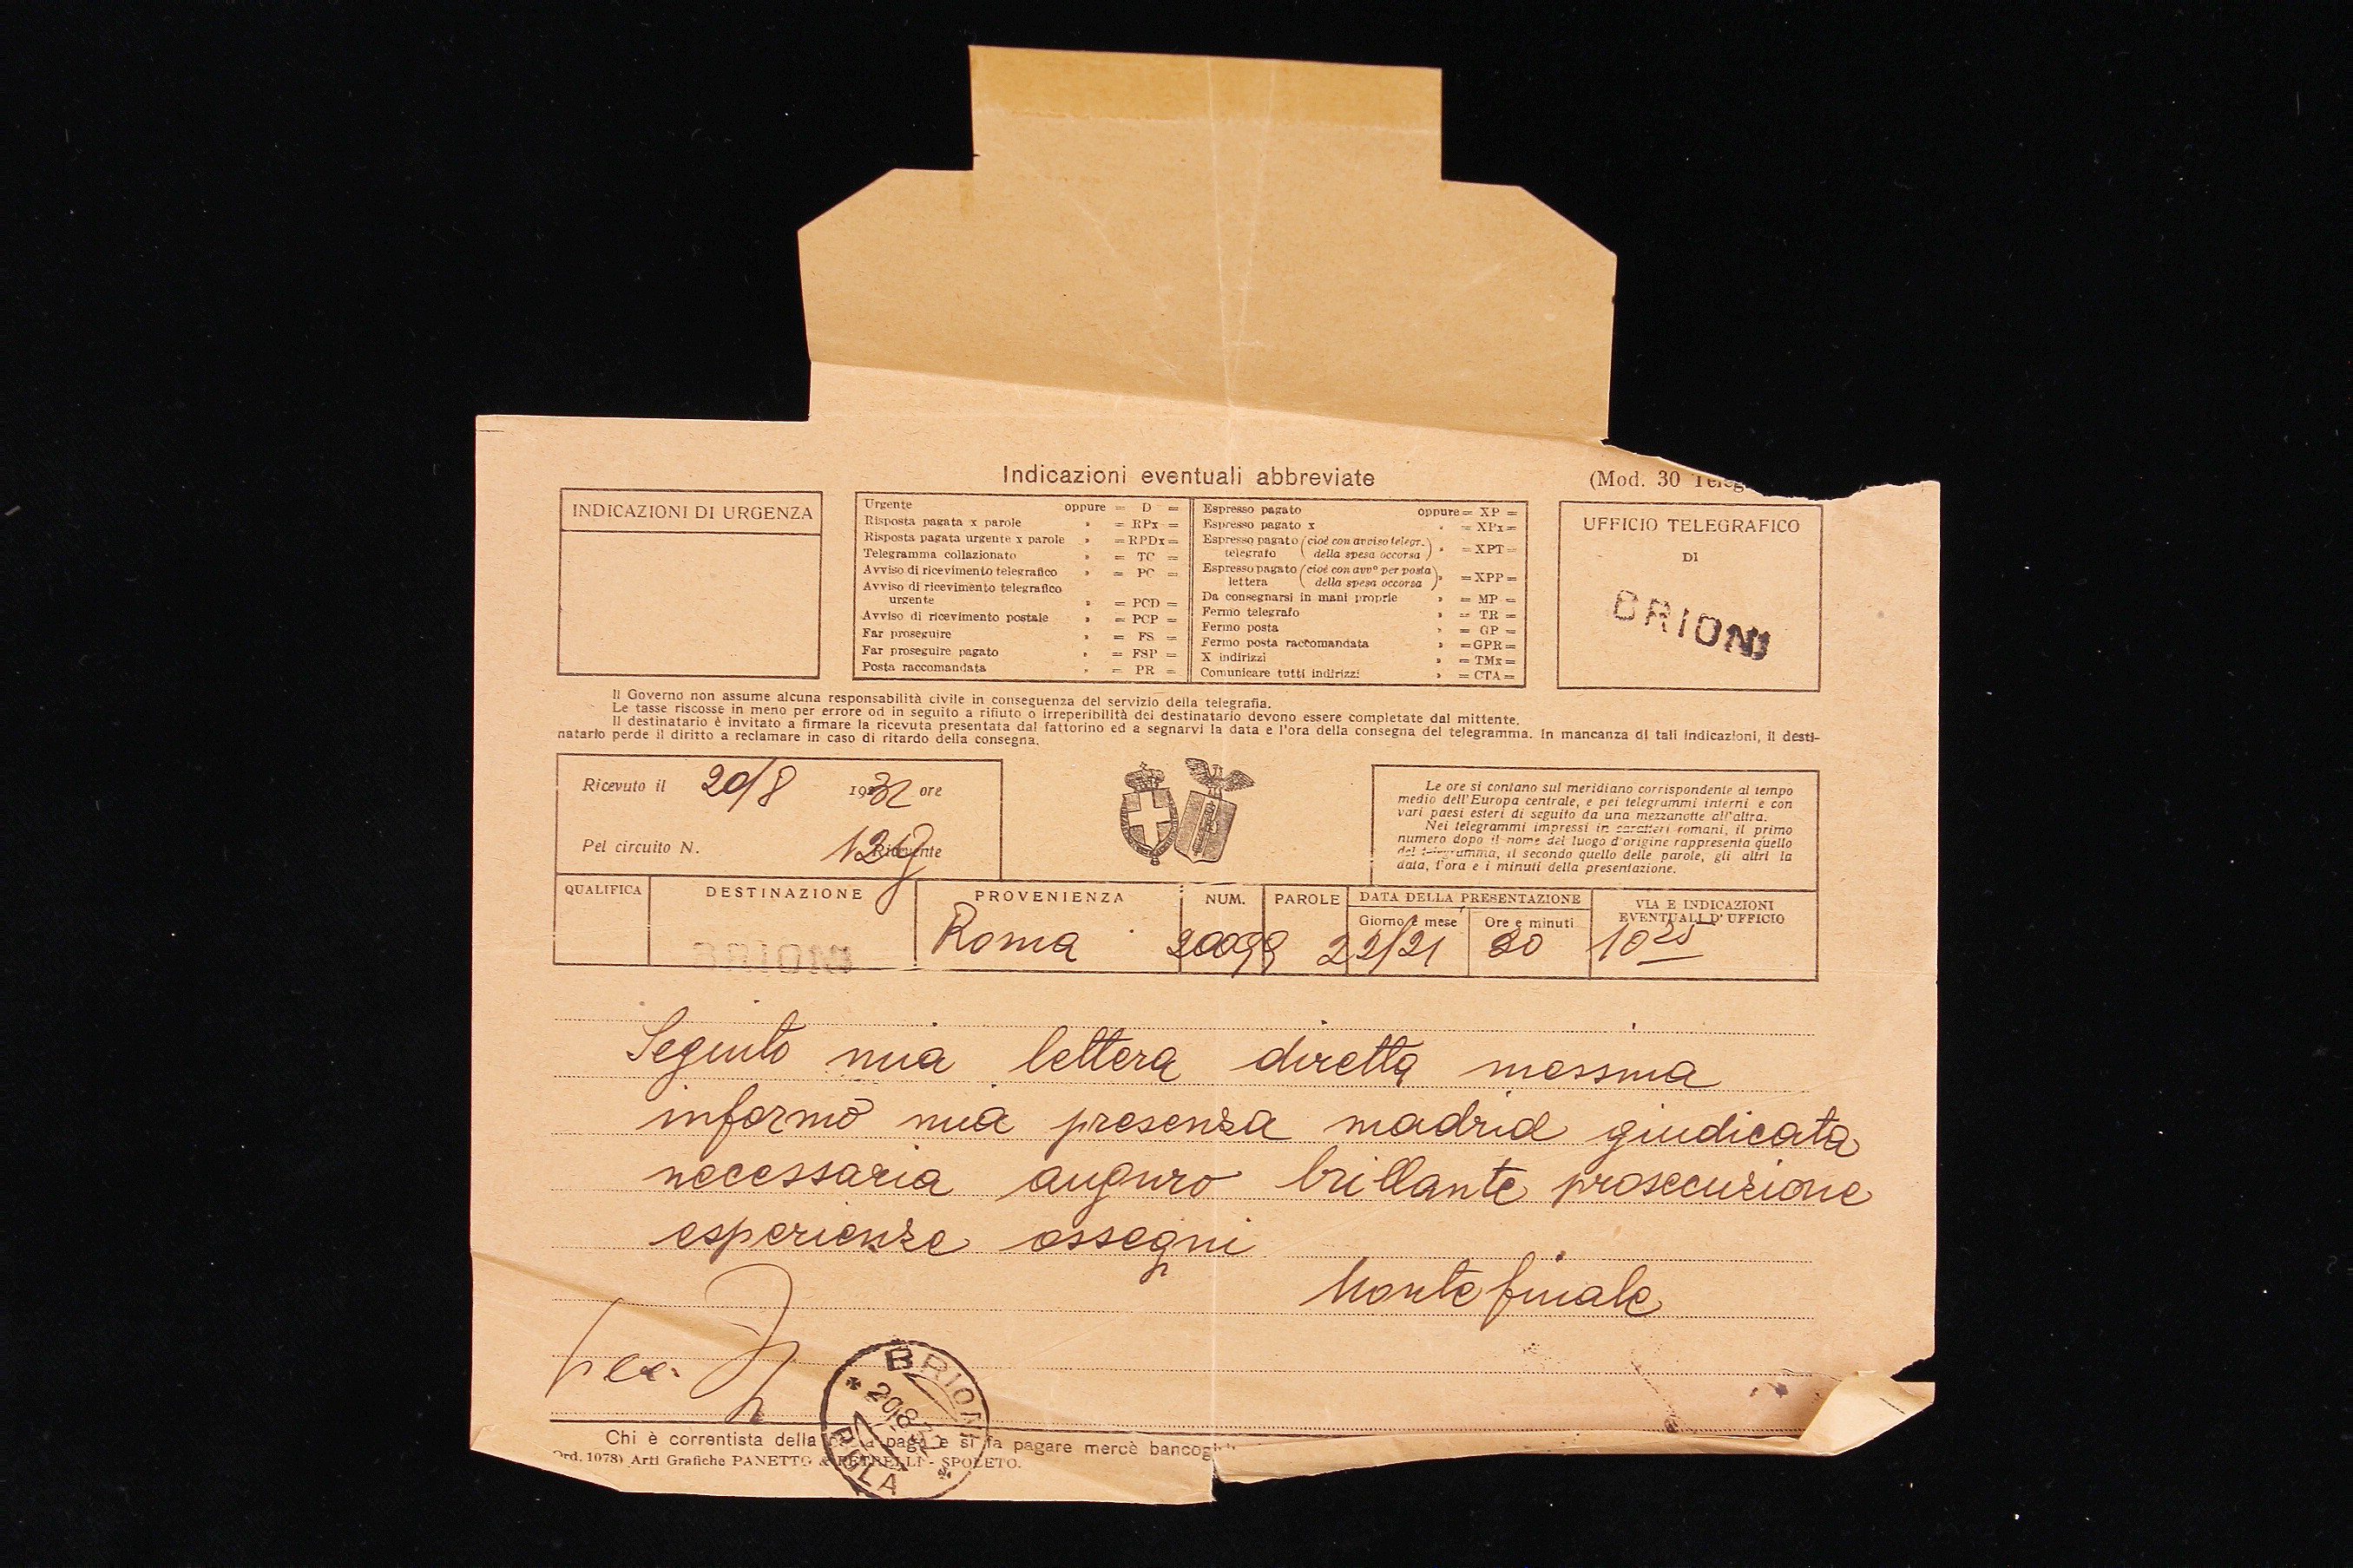 Indicazioni eventuali abbreviate
(Mod. 30 Teleg
INDICAZIONI DI URGENZA
Urgente oppure = D =
Risposta pagata x parole » = RPx =
Risposta pagata urgente x parole » = RPDx =
Telegramma collazionato » = TC =
Avviso di ricevimento telegrafico » = PC =
Avviso di ricevimento telegrafico
urgente » = PCD =
Avviso di ricevimento postale » = PCP =
Far proseguire » = FS =
Far proseguire pagato » = FSP =
Posta raccomandata » = PR =
Espresso pagato oppure = XP =
Espresso pagato x » = XPx =
Espresso pagato (cioè con avviso telegr.
telegrafo della spesa occorsa) » = XPT =
Espresso pagato (cioè con avvº per posta
lettera della spesa occorsa) » = XPP =
Da consegnarsi in mani proprie » = MP =
Fermo telegrafo » = TR =
Fermo posta » = GP =
Fermo posta raccomandata » = GPR =
X indirizzi » = TMx =
Comunicare tutti indirizzi » = CTA =
UFFICIO TELEGRAFICO
DI
BRIONI
Il Governo non assume alcuna responsabilità civile in conseguenza del servizio della telegrafia.
Le tasse riscosse in meno per errore od in seguito a rifiuto o irreperibilità del destinatario devono essere completate dal mittente.
Il destinatario è invitato a firmare la ricevuta presentata dal fattorino ed a segnarvi la data e l'ora della consegna del telegramma. In mancanza di tali indicazioni, il desti-
natario perde il diritto a reclamare in caso di ritardo della consegna.
Ricevuto il 20/8 1932 ore
Pel circuito N. Ricevente
Le ore si contano sul meridiano corrispondente al tempo
medio dell'Europa centrale, e pei telegrammi interni e con
vari paesi esteri di seguito da una mezzanotte all'altra.
Nei telegrammi impressi in caratteri romani, il primo
numero dopo il nome del luogo d'origine rappresenta quello
del telegramma, il secondo quello delle parole, gli altri la
data, l'ora e i minuti della presentazione.
QUALIFICA DESTINAZIONE PROVENIENZA NUM. PAROLE DATA DELLA PRESENTAZIONE VIA E INDICAZIONI
EVENTUALI D'UFFICIO
Giorno e mese Ore e minuti
BRIONI Roma 20099 22/21 20 10 25
Seguito mia lettera diretta messina
informo mia presenza madrid giudicata
necessaria auguro brillante prosecuzione
esperienze ossegni
Montefinale
BRIONI
20.8.32
POLA
Chi è correntista della paga e si fa pagare mercè bancogi
Ord. 1078) Arti Grafiche PANETTO & PETRELLI - SPOLETO.